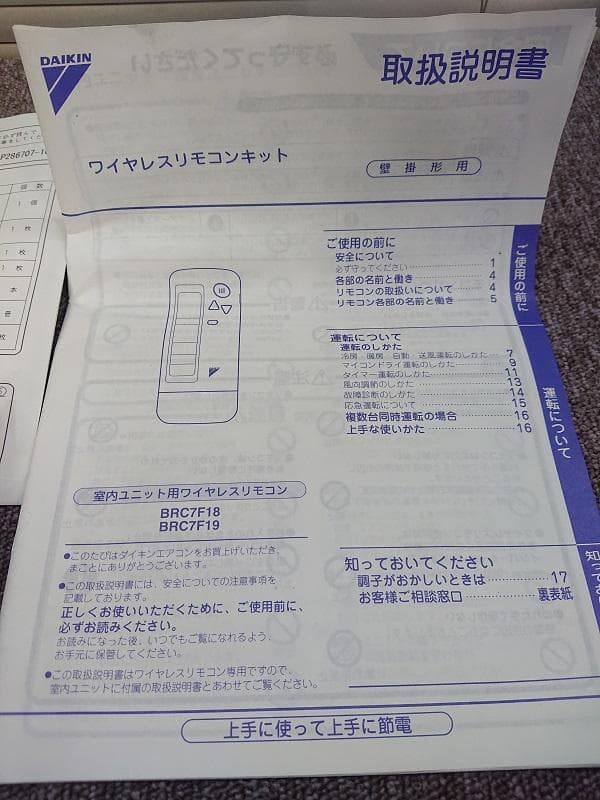 DAIKIN
取扱説明書
ワイヤレスリモコンキット
壁掛形用
ご使用の前に
安全について
必ず守ってください 1
各部の名前と働き 4
リモコンの取扱いについて 4
リモコン各部の名前と働き 5
運転について
運転のしかた
冷房・暖房・自動・送風運転のしかた 7
マイコンドライ運転のしかた 9
タイマー運転のしかた 11
風向調節のしかた 13
故障診断のしかた 14
応急運転について 15
複数台同時運転の場合 16
上手な使いかた 16
知っておいてください
調子がおかしいときは 17
お客様ご相談窓口 裏表紙
ご使用の前に
運転について
室内ユニット用ワイヤレスリモコン
BRC7F18
BRC7F19
●このたびはダイキンエアコンをお買上げいただき、
まことにありがとうございます。
●この取扱説明書には、安全についての注意事項を
記載しております。
正しくお使いいただくために、ご使用前に、
必ずお読みください。
お読みになった後、いつでもご覧になれるよう、
お手元に保管してください。
●この取扱説明書はワイヤレスリモコン専用ですので、
室内ユニットに付属の取扱説明書とあわせてご覧ください。
上手に使って上手に節電
個数
1個
1枚
1枚
1枚
本
冊
枚